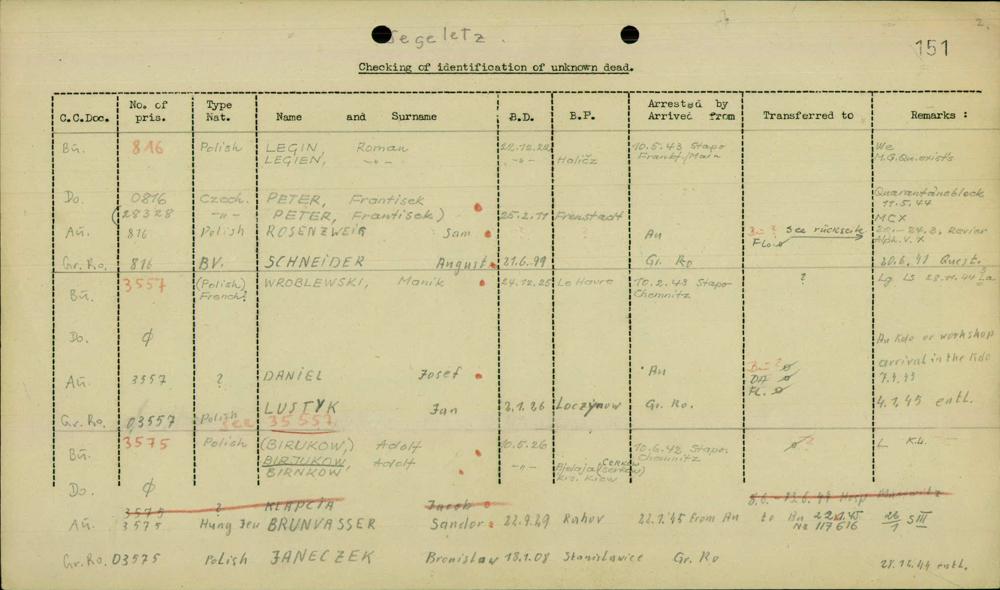 Segeletz.
2.
151
Checking of identification of unknown dead.
C.C.Doc. No. of pris. Type Nat. Name and Surname B.D. B.P. Arrested by Arrived from Transferred to Remarks :
Bu. 816 Polish LEGIN, Roman 22.12.22 10.5.43 Stapo We
LEGIEN, -"- -"- Holičz Frankf./Main M.G.Qu.exists
Do. 0816 Czech. PETER, Frantisek Quarantäneblock
11.5.44
(28328 -"- PETER, Frantisek) 25.2.11 Frenstadt MCX
Au. 816 Polish ROSENZWEIG Sam ? ? Au Bu? See rückseite 24.3. Revier
Flo
Gr. Ro. 816 BV. SCHNEIDER August 21.6.99 Gr. Ro 20.6.41 Quest.
Bu. 3557 (Polish) French? WROBLEWSKI, Manik 24.12.25 Le Havre 10.2.43 Stapo Chemnitz ? Lg LS 28.11.44
Do. ϕ Au Kdo or workshop
arrival in the Kdo
Au. 3557 ? DANIEL Josef Au Bu? 7.4.43
DA
FL.
Gr. Ro. 03557 Polish LUSTYK Jan 2.1.26 Loczynow Gr. Ro. 4.1.45 entl.
see 35 557
Bu. 3575 Polish (BIRUKOW,) Adolf 10.5.26 10.6.42 Stapo Chemnitz ? L K.L.
BIRJUKOW Adolf -"- Bjelaja Cerkow (Serkow)
BIRNKOW Krs. Kiew
Do. ϕ
3575 ? KLAPCIA Jacob 8.6. - 13.6.44 Hosp Monowitz
Au. 3575 Hung Jew BRUNVASSER Sandor 22.9.29 Rahov 22.1.45 from Au to Bu 22.1.45 26/1 S III
No 117616
Gr. Ro. 03575 Polish JANECZEK Bronislaw 18.1.08 Stanislawice Gr. Ro
21.12.44 entl.